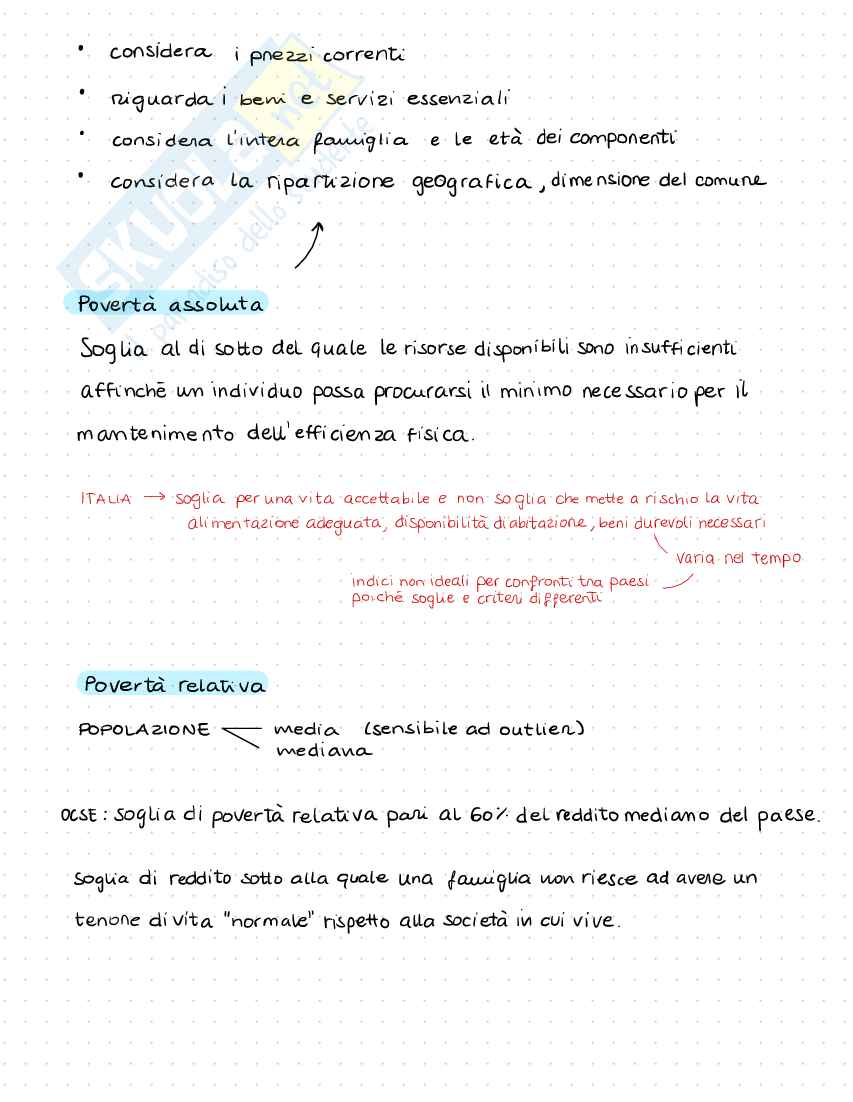 • considera i prezzi correnti
• riguarda i beni e servizi essenziali
• considera l'intera famiglia e le età dei componenti
• considera la ripartizione geografica, dimensione del comune
SKUOLA.net
paradiso dello studente
Povertà assoluta
Soglia al di sotto del quale le risorse disponibili sono insufficienti
affinchē un individuo possa procurarsi il minimo necessario per il
mantenimento dell'efficienza fisica.
ITALIA → soglia per una vita accettabile e non soglia che mette a rischio la vita
alimentazione adeguata, disponibilità di abitazione, beni durevoli necessari
varia nel tempo
indici non ideali per confronti tra paesi
poiché soglie e criteri differenti
Povertà relativa
POPOLAZIONE media (sensibile ad outlier)
mediana
OCSE: soglia di povertà relativa pari al 60% del reddito mediano del paese.
soglia di reddito sotto alla quale una famiglia non riesce ad avere un
tenore di vita "normale" rispetto alla società in cui vive.